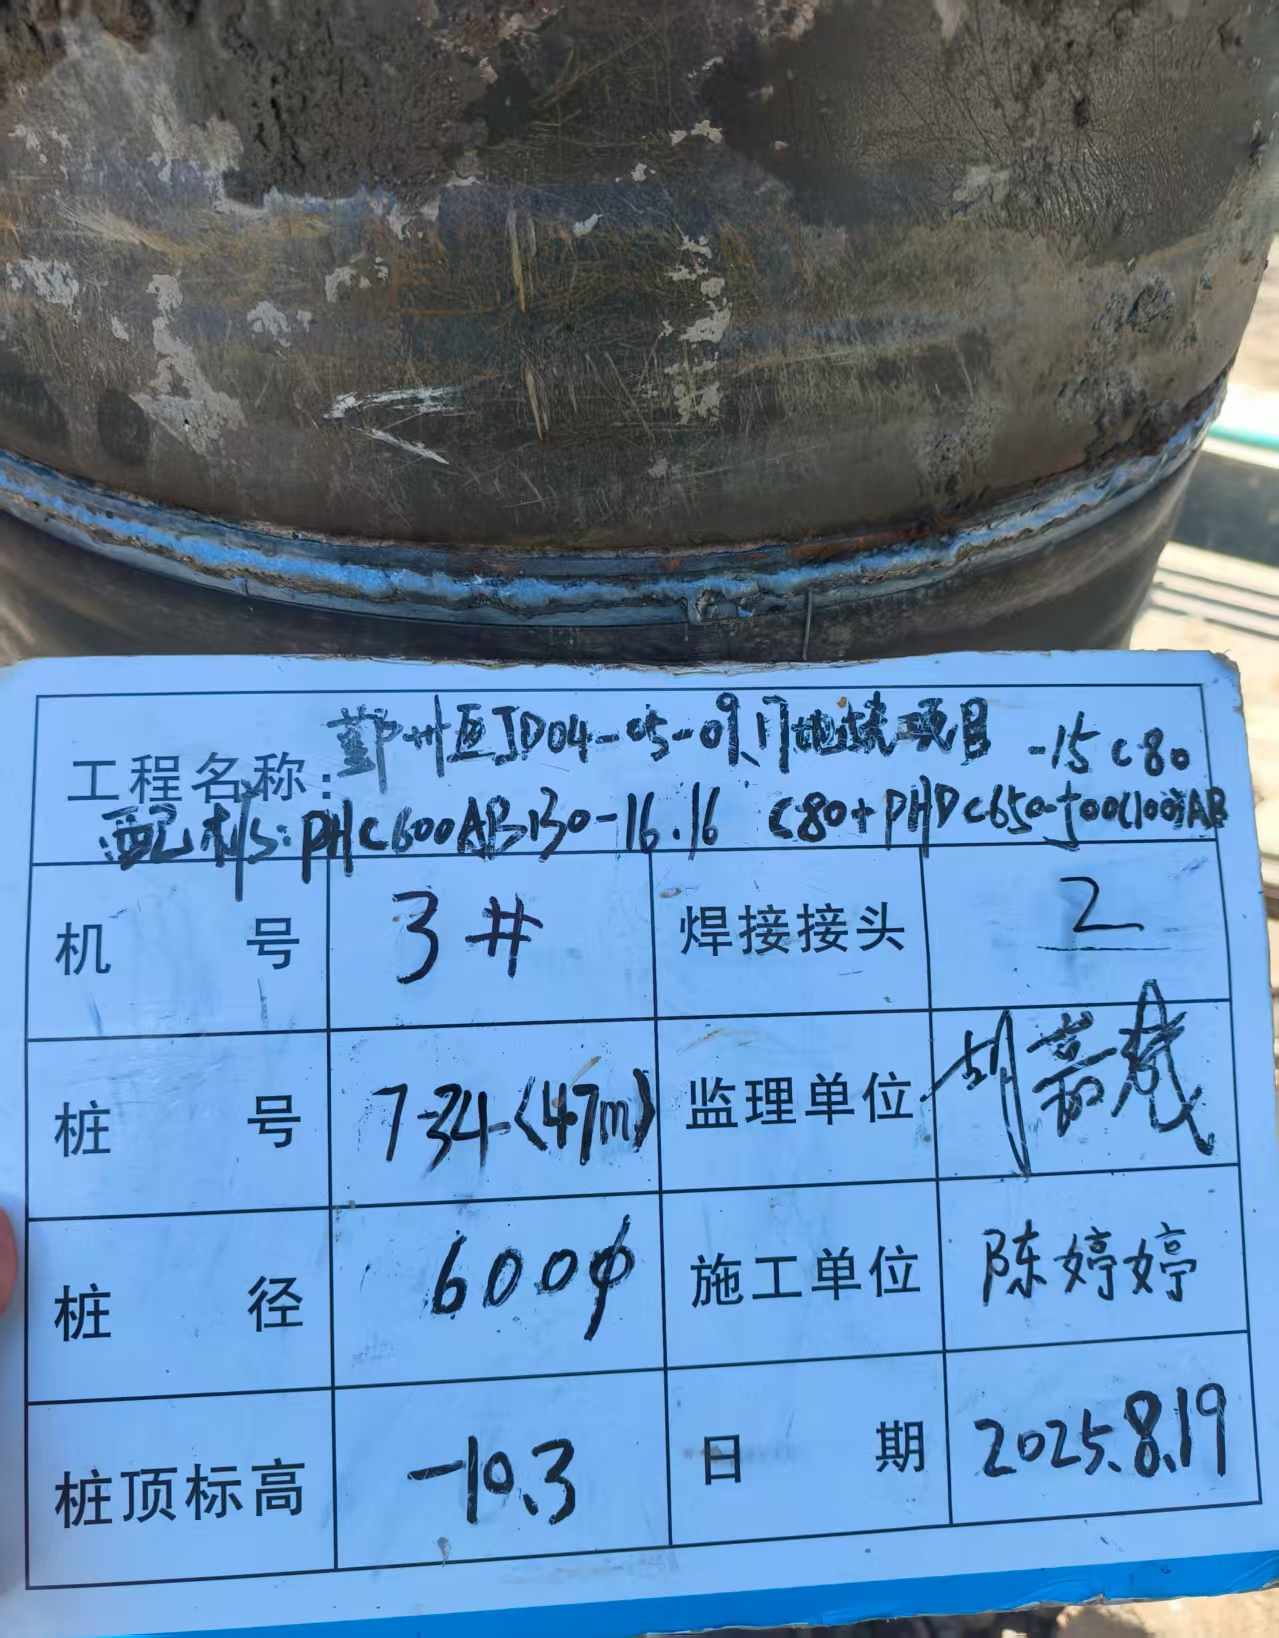 工程名称: 鄞州区JD04-05-09,17地块项目 -15 C80
配桩: PHC600AB130-16.16 C80+PHDC650-500(100)AB
机 号 3# 焊接接头 2
桩 号 734(47m) 监理单位 胡嘉
桩 径 600φ 施工单位 陈婷婷
桩顶标高 -10.3 日 期 2025.8.19